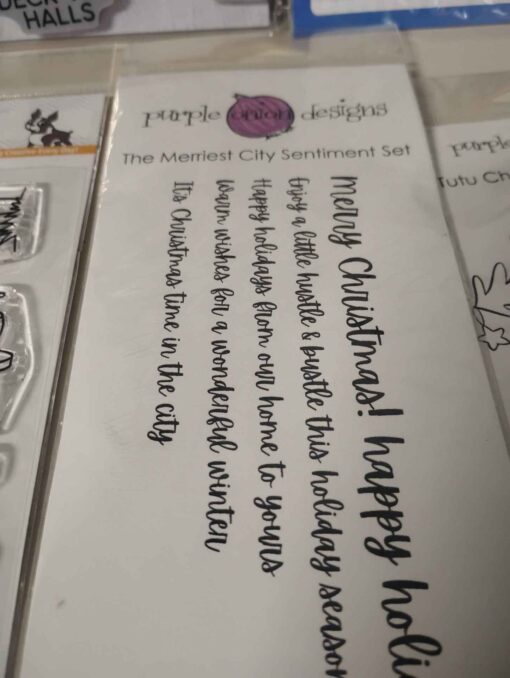 DECK
HALLS
purple onion designs
The Merriest City Sentiment Set
Merry Christmas! happy holi
Enjoy a little hustle & bustle this holiday season
Happy holidays from our home to yours
Warm wishes for a wonderful winter
It's Christmas time in the city
purple
Tutu Ch